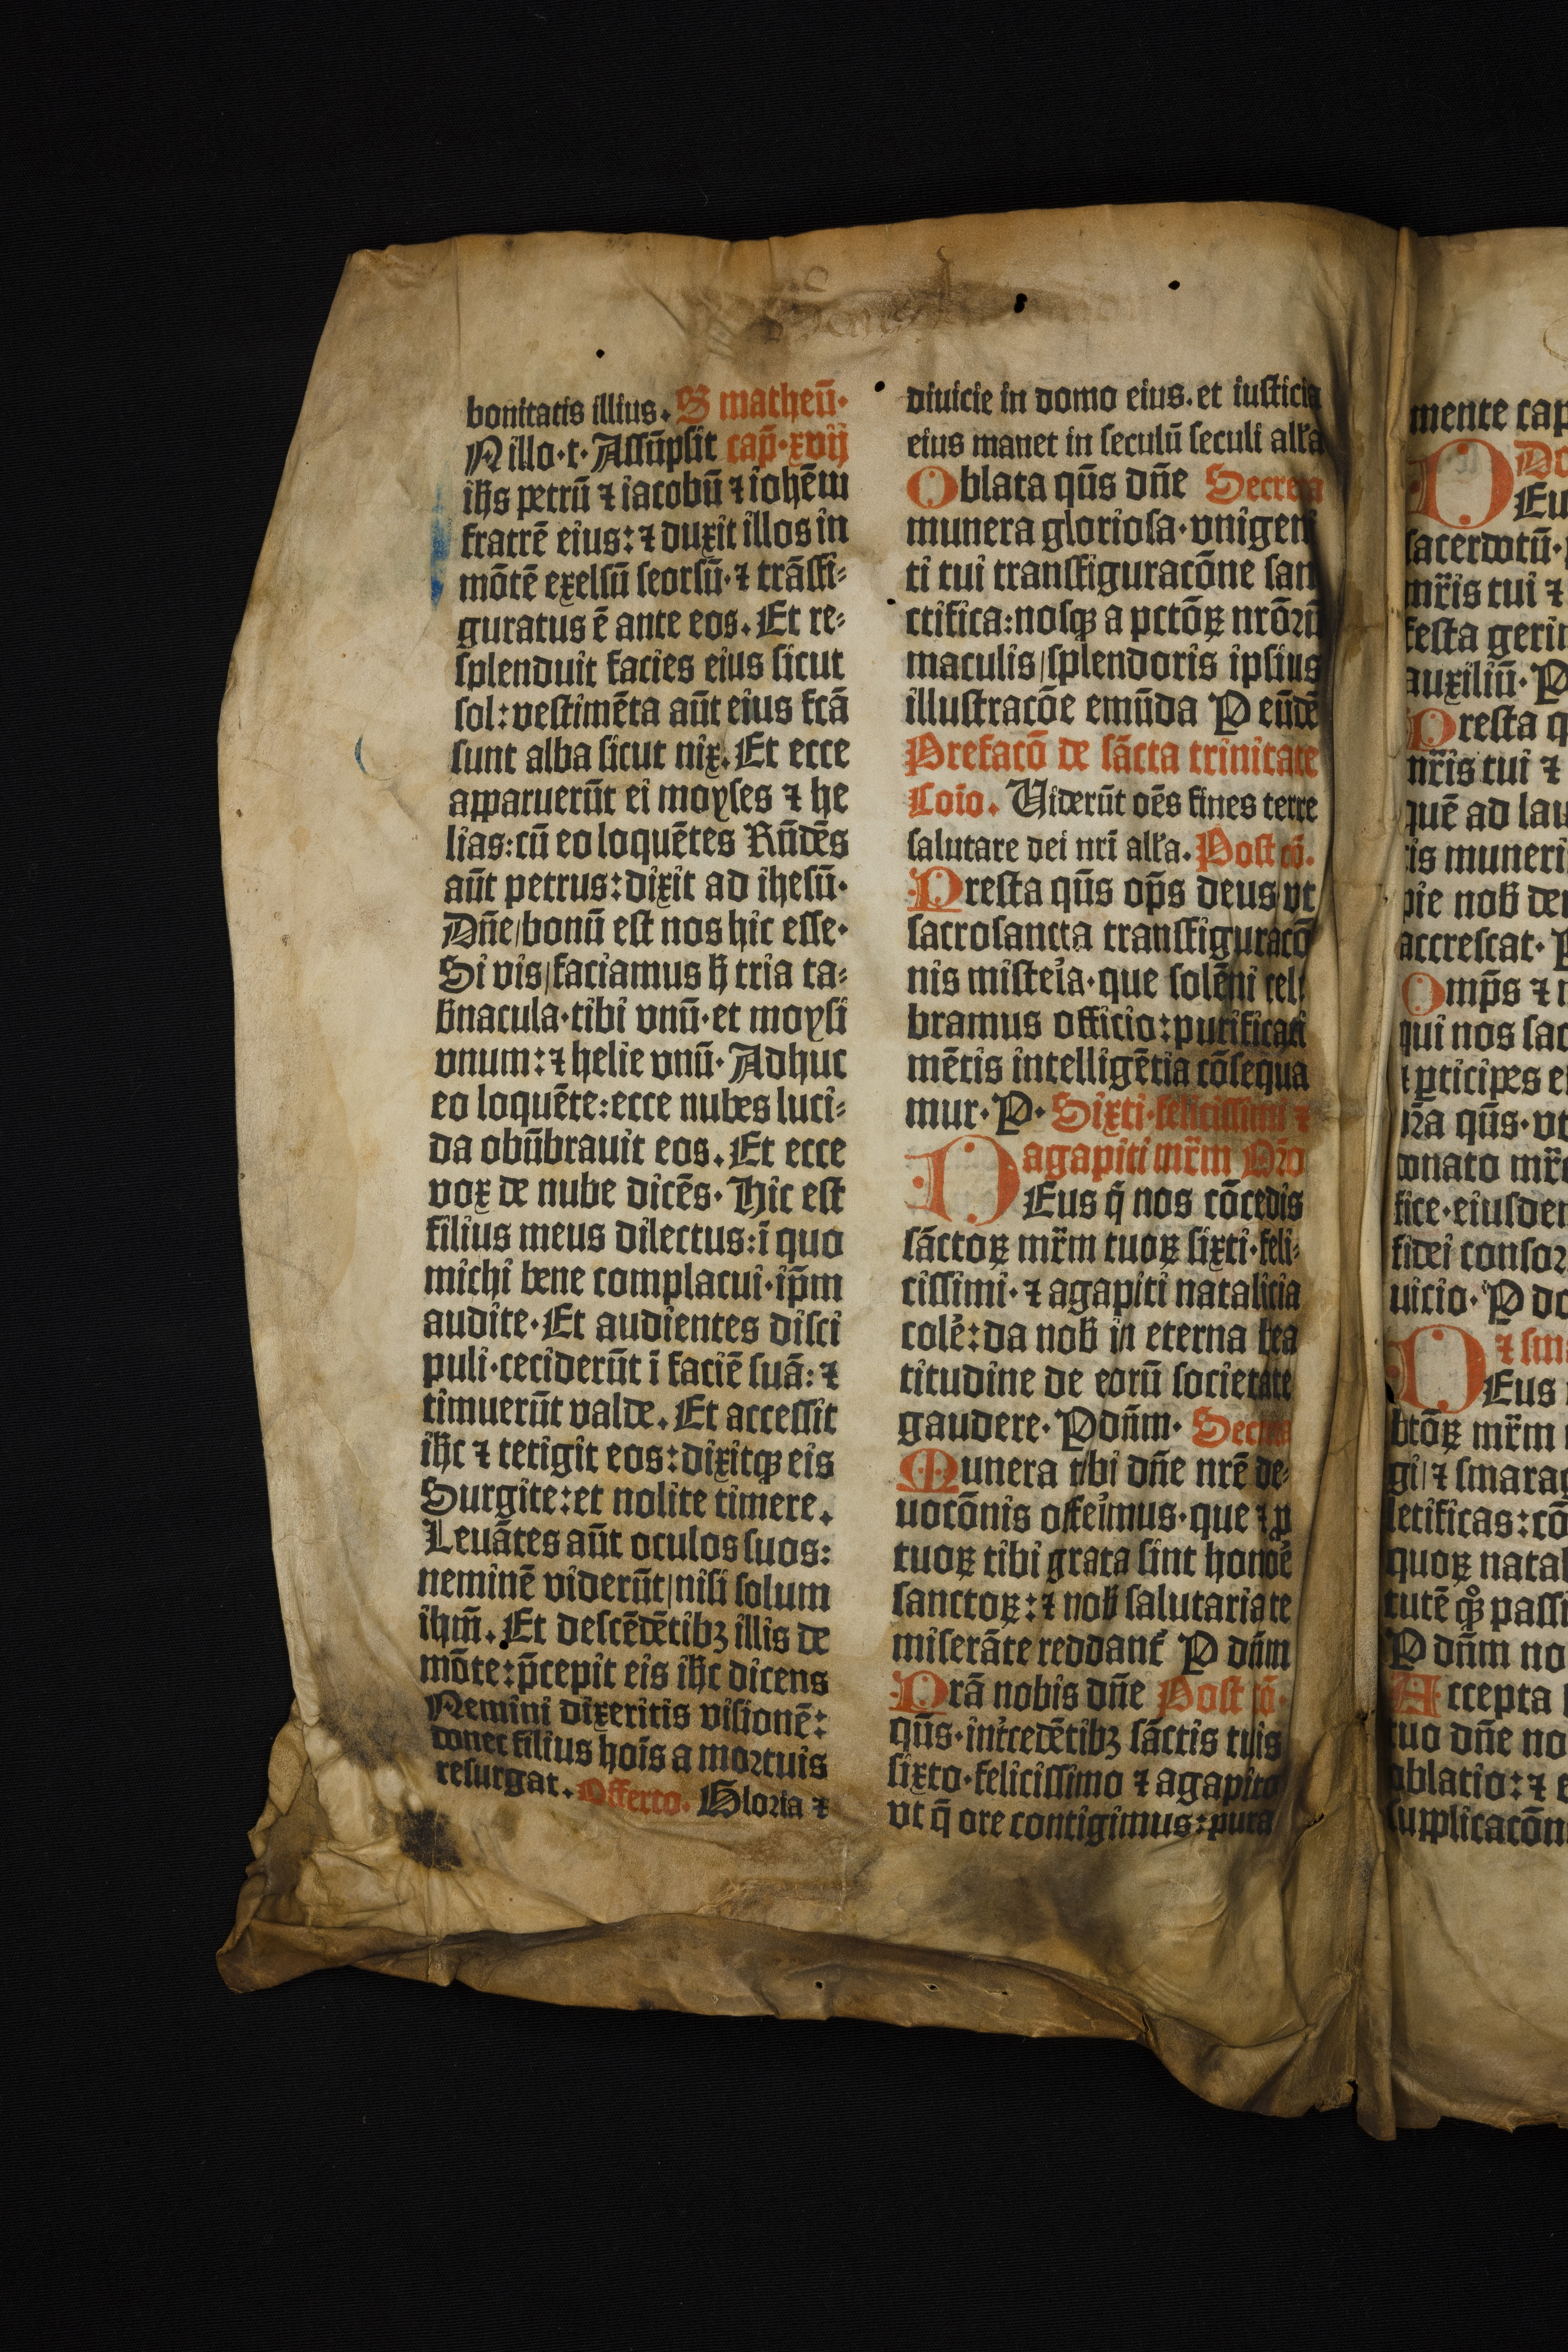 bonitatis illius. S matheū·
N illo·t· Assūpsit cap̄·xvij
ih̄s petrū ⁊ iacobū ⁊ iohēm
fratrē eius: ⁊ duxit illos in
mōtē exelsū seorsū· ⁊ trāsfi⸗
guratus ē ante eos. Et re⸗
splenduit facies eius sicut
sol: vestimēta aūt eius fcā
sunt alba sicut nix. Et ecce
apparuerūt ei moyses ⁊ he
lias: cū eo loquētes Rn̄dēs
aūt petrus: dixit ad ihesū·
Dn̄e/bonū est nos hic esse·
Si vis/faciamus h̄ tria ta⸗
b̄nacula· tibi vnū· et moysi
vnum: ⁊ helie vnū· Adhuc
eo loquēte: ecce nubes luci⸗
da obūbrauit eos. Et ecce
vox de nube dicēs· Hic est
filius meus dilectus: ī quo
michi bene complacui· ip̄m
audite· Et audientes disci
puli· ceciderūt ī faciē suā: ⁊
timuerūt valde. Et accessit
ih̄c ⁊ tetigit eos: dixitqꝫ eis
Surgite: et nolite timere.
Leuātes aūt oculos suos:
neminē viderūt/nisi solum
ihm̄. Et descēdētibꝫ illis de
mōte: p̄cepit eis ih̄c dicens
Nemini dixeritis visionē:
donec filius hoīs a mortuis
resurgat. Offerto. Gloria ⁊
diuicie in domo eius. et iusticia
eius manet in seculū seculi all̄a
Oblata qūs dn̄e Secreta
munera gloriosa· vnigeni
ti tui transfiguracōne san
ctifica: nosqꝫ a pctōꝝ nrōrū
maculis/splendoris ipsius
illustracōe emūda P eūdē
Prefacō de sācta trinitate
Coīo. Viderūt oēs fines terre
salutare dei nrī all̄a. Post cō.
Presta qūs op̄s deus vt
sacrosancta transfiguracō
nis misteia· que solēni cel̄
bramus officio: purificati
mētis intelligētia cōsequa
mur· P· Sixti· felicissimi ⁊
agapiti mr̄m Oro
DEus q̄ nos cōcedis
sāctoꝝ mr̄m tuoꝝ sixti· feli⸗
cissimi· ⁊ agapiti natalicia
colē: da nob̄ in eterna bea
titudine de eorū societate
gaudere· P dn̄m· Secreta
Munera tibi dn̄e nrē de⸗
uocōnis offeimus· que ⁊ ꝓ
tuoꝝ tibi grata sint honoē
sanctoꝝ: ⁊ nob̄ salutaria te
miserāte reddant̄ P dn̄m
Prā nobis dn̄e Post cō·
qūs· int̄cedētibꝫ sāctis tuis
sixto· felicissimo ⁊ agapito
vt q̄ ore contigimus: pura
mente cap
Do
DEu
sacerdotū·
mr̄is tui ⁊
festa geri
auxiliū· P
Presta q
mr̄is tui ⁊
quē ad lau
is muneri
pie nob̄ de
accrescat· P
Omp̄s ⁊
qui nos sac
ꝑticipes e
ra qūs· vt
donato mr̄
fice· eiusdem
fidei consor
uicio· P do
⁊ sma
DEus
btōꝝ mr̄m
gi/⁊ smarag
letificas: cō
quoꝝ natal
tutē qꝫ passi
P dn̄m no
Accepta
tuo dn̄e no
oblatio: ⁊ e
supplicacōn